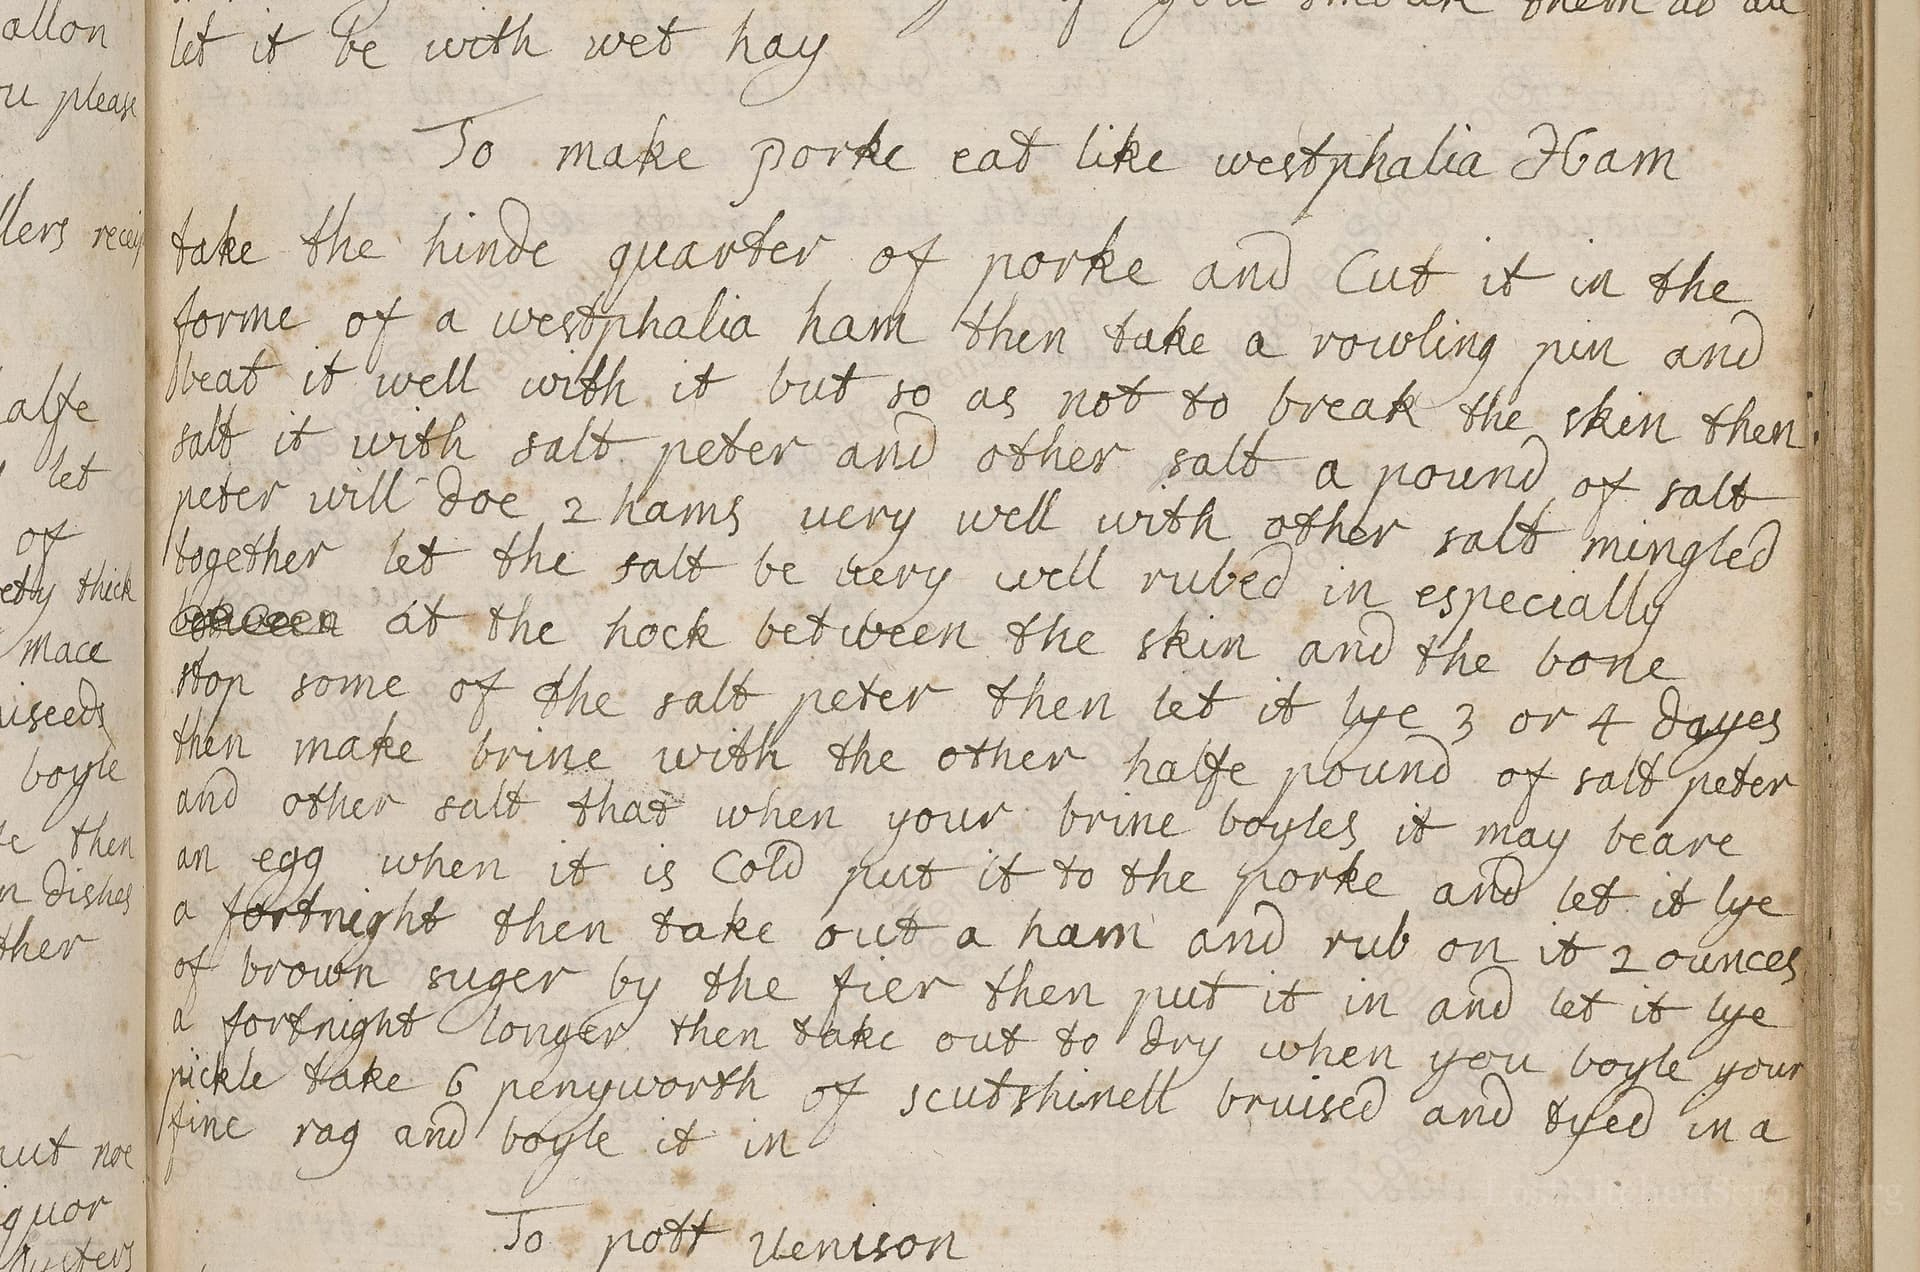 allon
u please
llers
alfe
let
of
thick
mace
boyle
then
dishes
ther
noe
quor
you smoake them at all
let it be with wet hay
To make porke eat like westphalia Ham
take the hinde quarter of porke and Cut it in the
forme of a westphalia ham then take a rowling pin and
beat it well with it but so as not to break the skin then
salt it with salt peter and other salt a pound of salt
peter will doe 2 hams very well with other salt mingled
together let the salt be very well rubed in especially
at the hock between the skin and the bone
stop some of the salt peter then let it lye 3 or 4 dayes
then make brine with the other halfe pound of salt peter
and other salt that when your brine boyles it may beare
an egg when it is Cold put it to the porke and let it lye
a fortnight then take out a ham and rub on it 2 ounces
of brown suger by the fier then put it in and let it lye
a fortnight longer then take out to dry when you boyle your
pickle take 6 penyworth of scutshinell bruised and tyed in a
fine rag and boyle it in
To pott venison